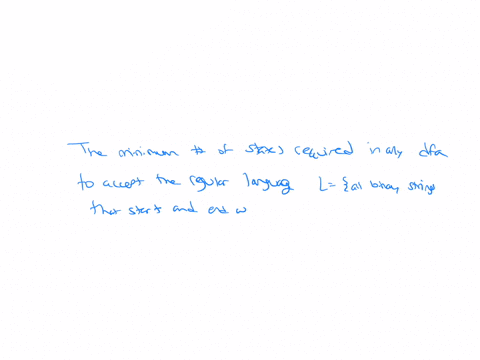 The minimum # of states required in any dfa
to accept the regular language L = {all binary strings
that start and end w